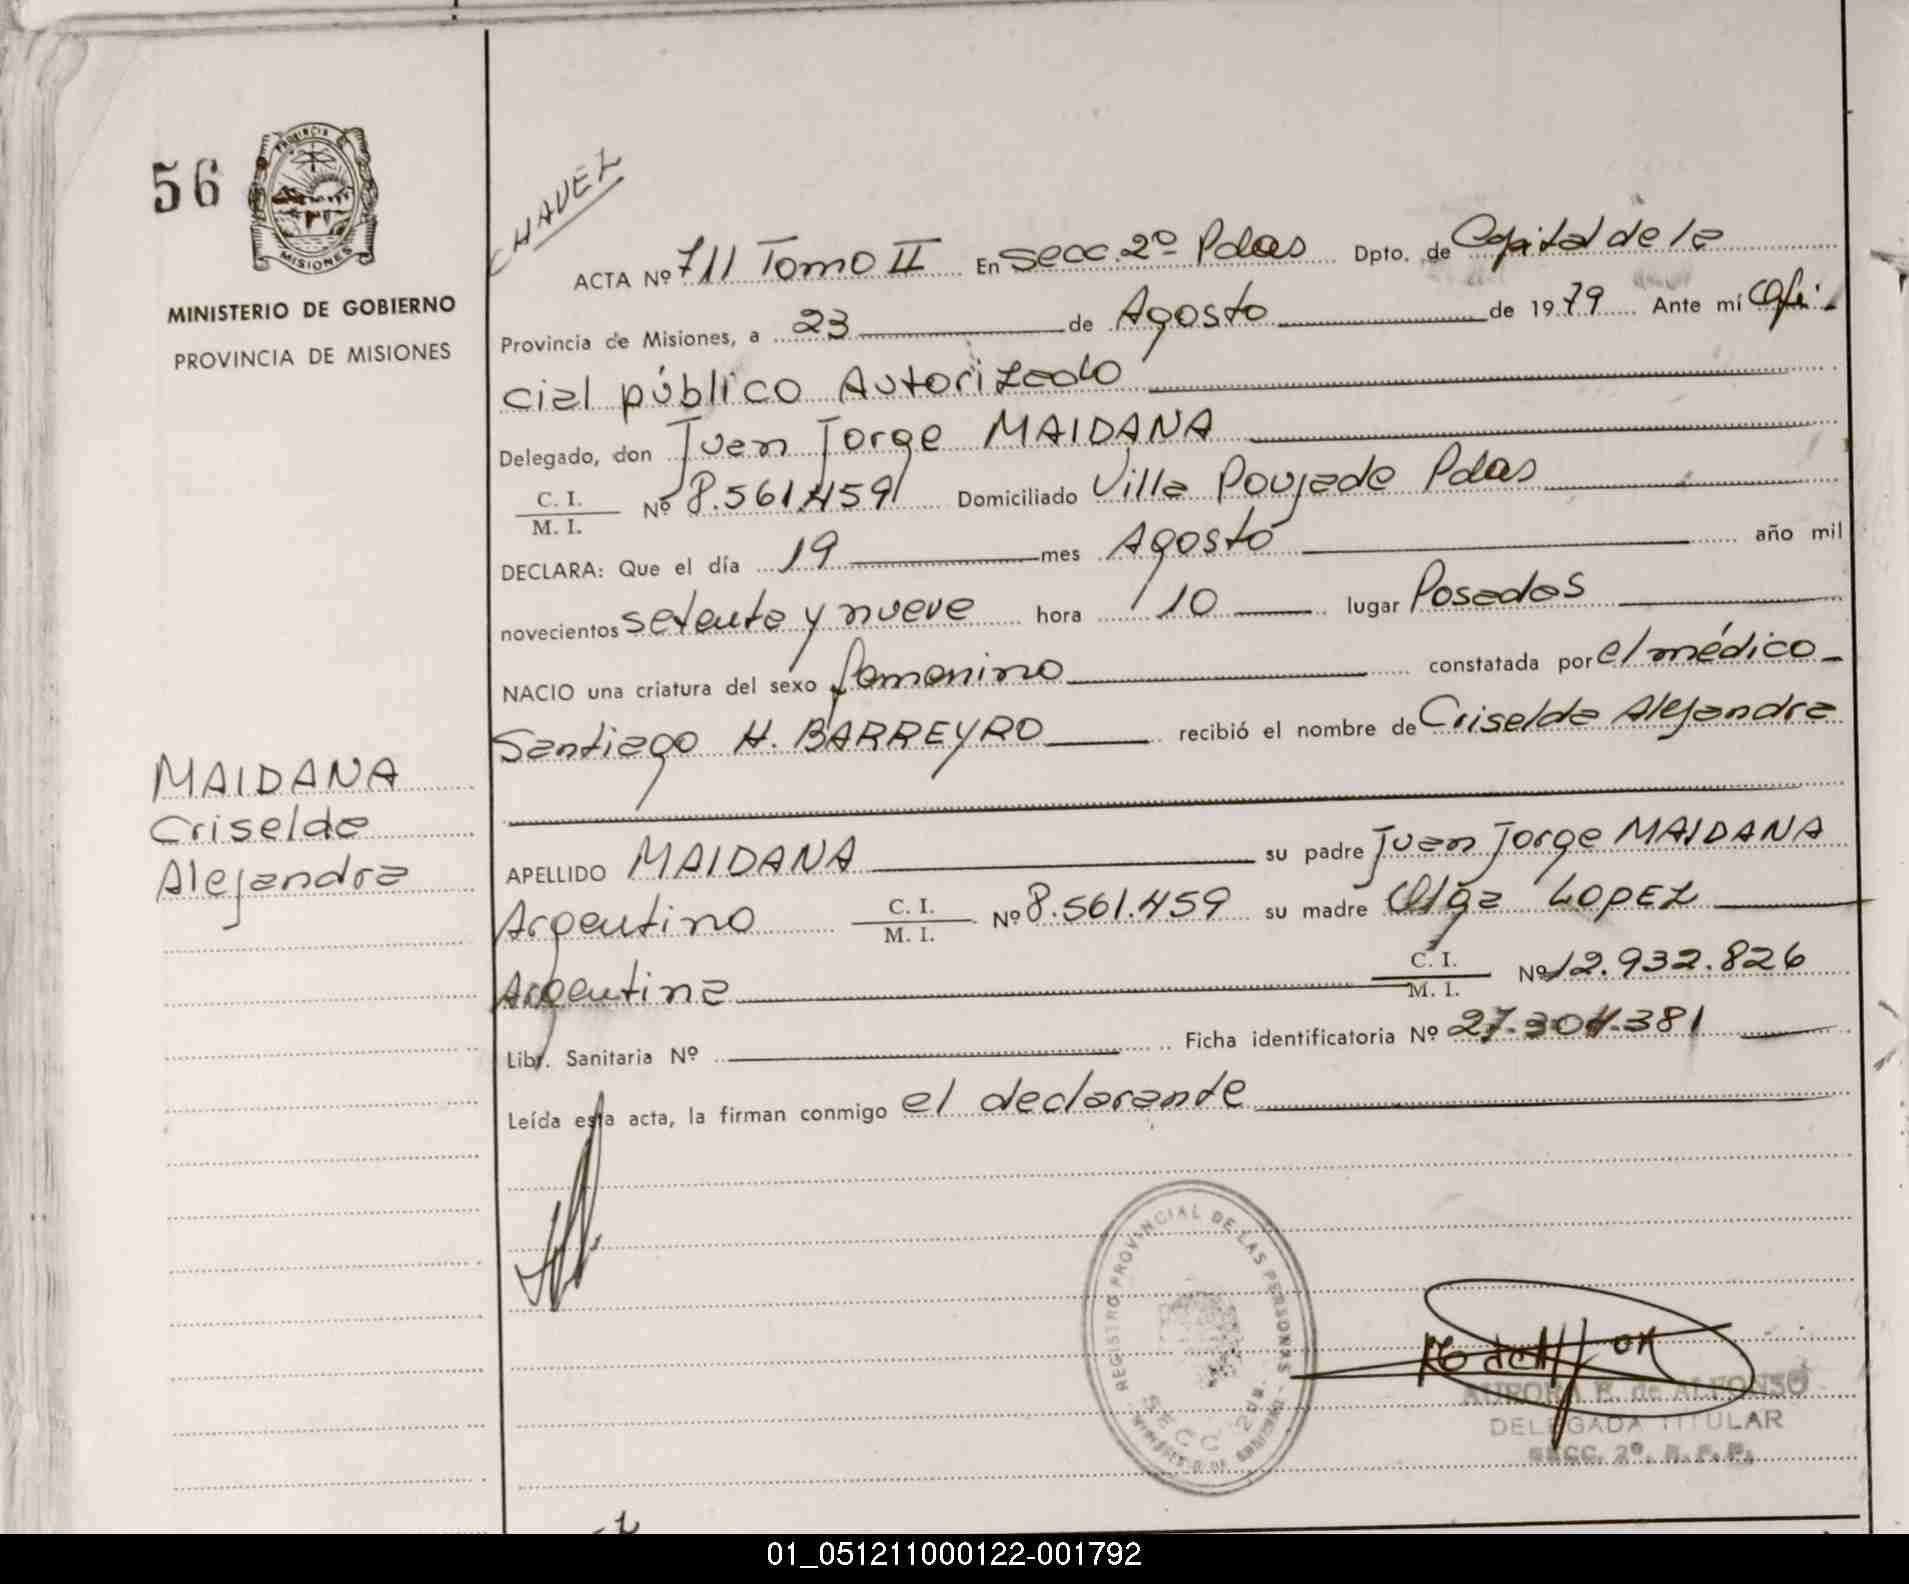 56
PROVINCIA
MISIONES
MINISTERIO DE GOBIERNO
PROVINCIA DE MISIONES
CHAVEZ
ACTA Nº 711 Tomo II En Secc. 2º Pdas Dpto. de Capital de la
Provincia de Misiones, a 23 de Agosto de 1979 Ante mí Ofi-
cial público Autorizado
Delegado, don Juan Jorge MAIDANA
C. I.
M. I.
Nº 8.561.459 Domiciliado Villa Poujade Pdas
DECLARA: Que el día 19 mes Agosto año mil
novecientos setenta y nueve hora 10 lugar Posadas
NACIO una criatura del sexo femenino constatada por el médico
Santiago H. BARREYRO recibió el nombre de Criselda Alejandra
MAIDANA
Criselda
Alejandra
APELLIDO MAIDANA su padre Juan Jorge MAIDANA
Argentino C. I. M. I. Nº 8.561.459 su madre Olga LOPEZ
Argentina C. I. M. I. Nº 12.932.826
Libr. Sanitaria Nº Ficha identificatoria Nº 27.304.381
Leída esta acta, la firman conmigo el declarante
REGISTRO PROVINCIAL DE LAS PERSONAS
SECC. 2da.
AURORA R. de ALFONSO
DELEGADA TITULAR
SECC. 2º. R. P. P.
01_051211000122-001792